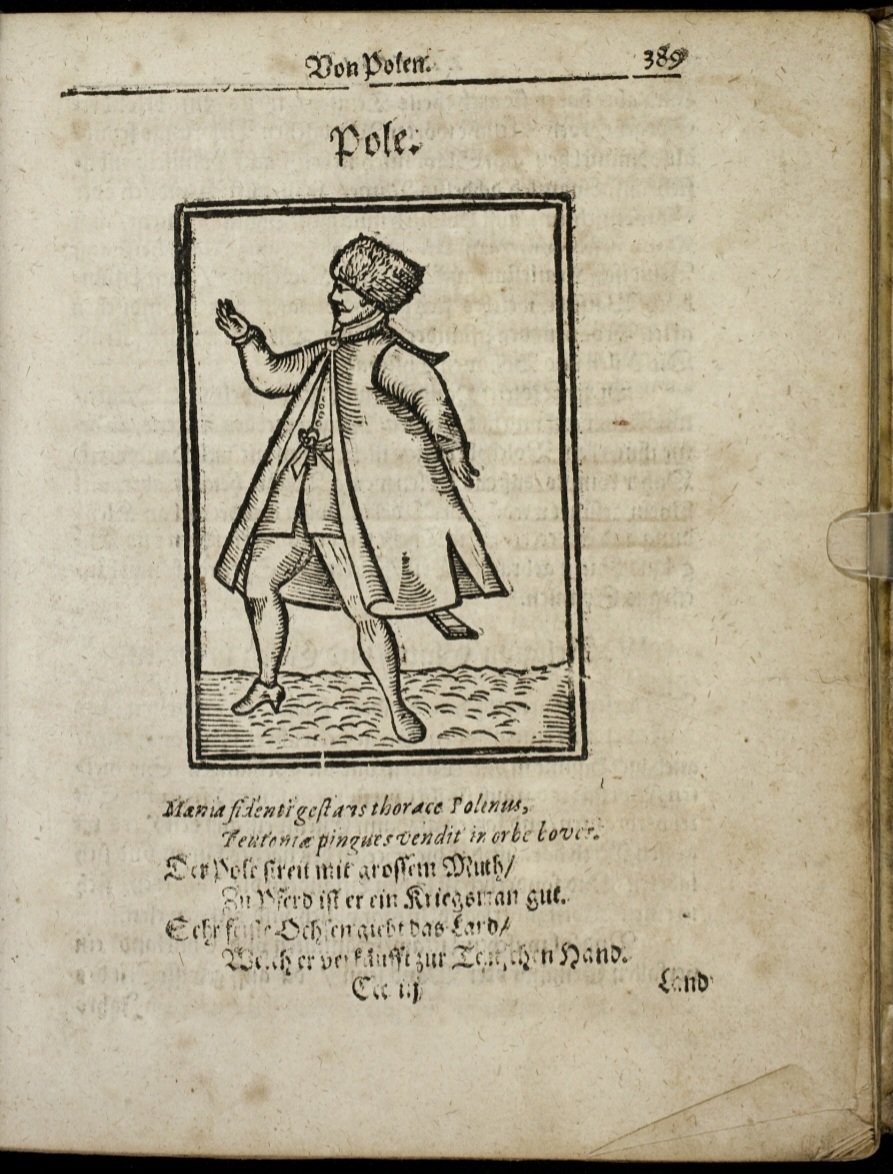 Von Polen.
389
Pole.
Mænia fidenti gestans thorace Polenus,
Teutoniæ pingues vendit in orbe boves.
Der Pole streit mit grossem Muth/
Zu Pferd ist er ein Kriegsman gut.
Sehr feiste Ochsen giebt das Land/
Welch er verkäufft zur Teutschen Hand.
Ccc iij
Land